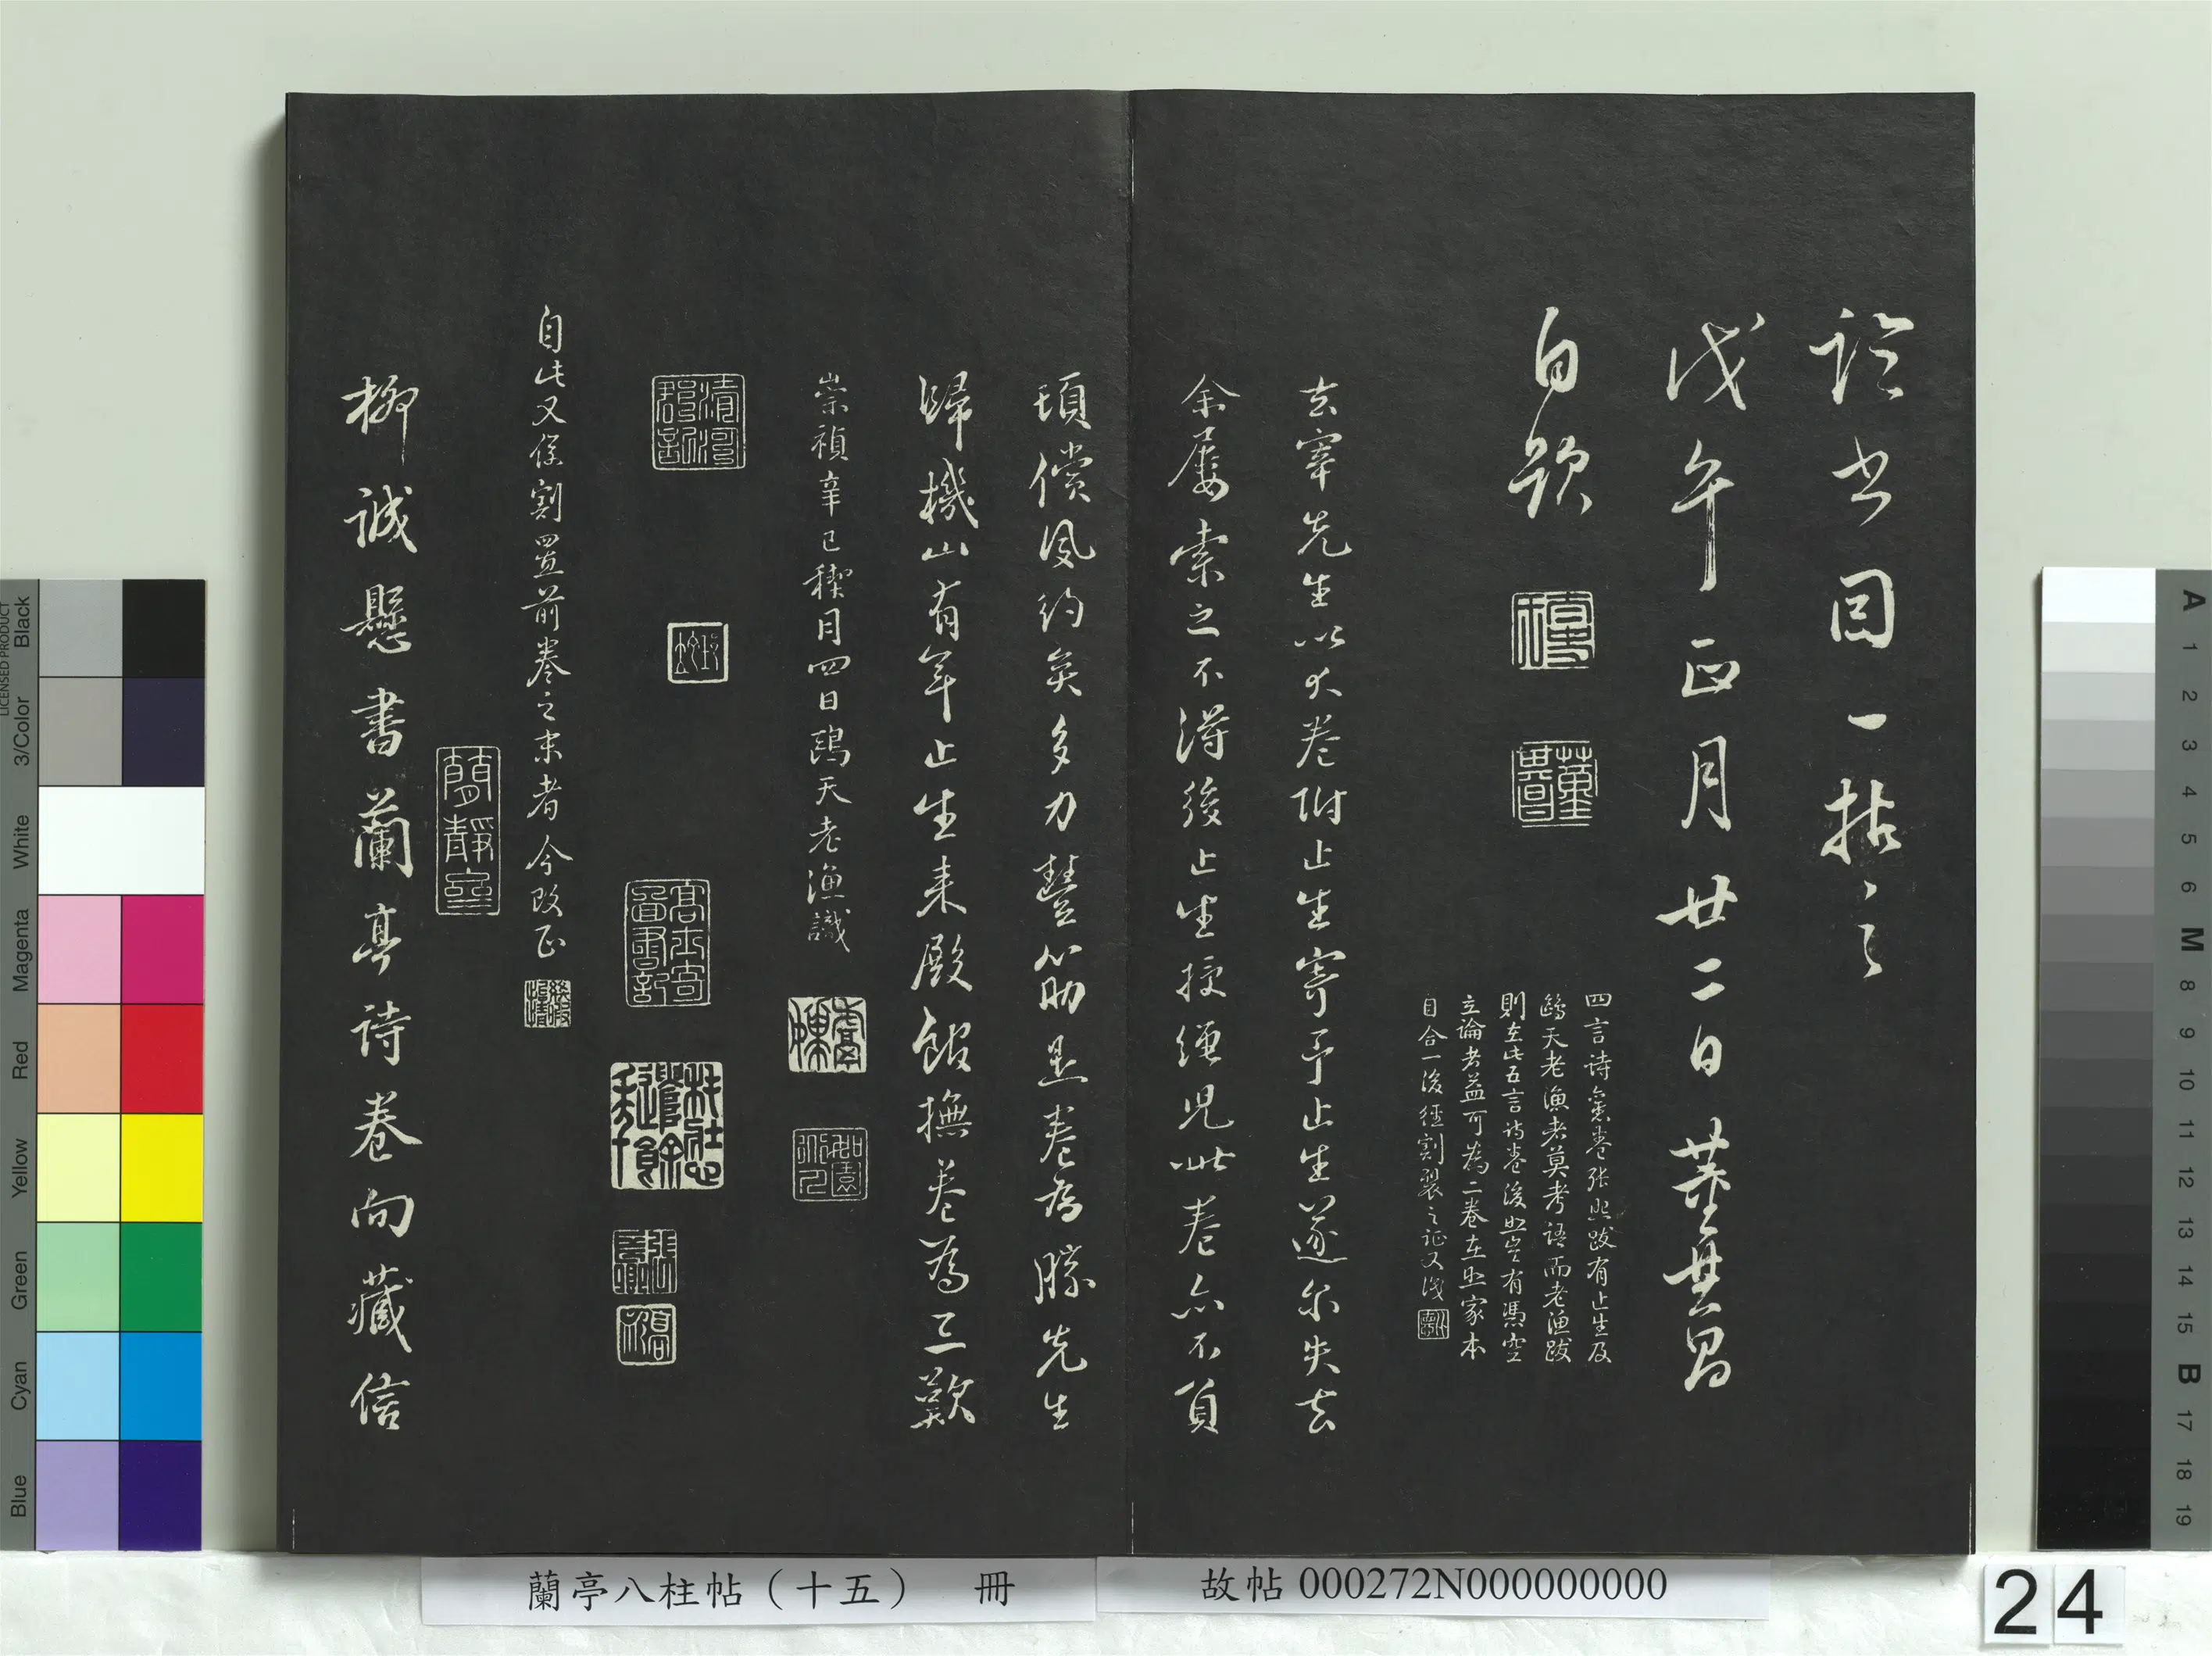 論書同一拈之
戊午正月廿二日董其昌
自題
四言詩這卷張照跋有止生及
鷗天老漁者莫考語而老漁跋
則在此五言詩卷後照豈有憑空
立論者益可為二卷在照家本
自合一後經割裂之証又識
玄宰先生以久卷附止生寄予止生遂爾失去
余屢索之不得後止生授經兒此卷亦不負
頃償夙約矣多力豐筋是卷為勝先生
歸機山有年止生來殿館撫卷為三歎
崇禎辛巳稧月四日鷗天老漁識
自此又係割置前卷之末者今改正
柳誠懸書蘭亭詩卷向藏信
簡靜齋
蘭亭八柱帖（十五） 冊
故帖 000272N000000000
24
LICENSED PRODUCT
Black
3/Color
White
Magenta
Red
Yellow
Green
Cyan
Blue
A
1
2
3
4
5
6
M
8
9
10
11
12
13
14
15
B
17
18
19